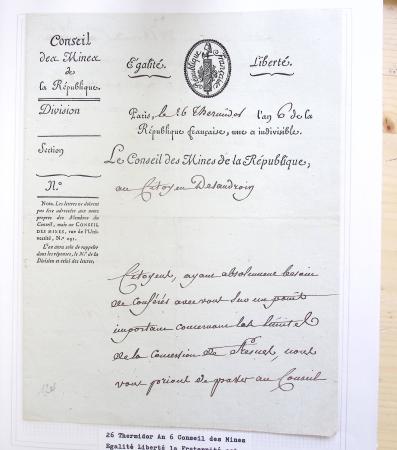 Conseil
des Mines
de
la République.
Division
Section
N.º
Nota. Les lettres ne doivent
pas être adressées aux noms
propres des Membres du
Conseil, mais au CONSEIL
DES MINES, rue de l'Uni-
versité, N.º 291.
L'on aura soin de rappeler
dans les réponses, le N.º de la
Division et celui des lettres.
Egalité.
République Française
Liberté.
Paris, le 26 Thermidor l'an 6 de la
République française, une et indivisible.
Le Conseil des Mines de la République,
au Citoyen Desandroin
Citoyent, ayant absolument besoin
de conférés avec vous sur un point
important concernant les limites
de la concession de Fresnes, nous
vous prions de passer au Conseil
26 Thermidor An 6 Conseil des Mines
Egalité Liberté la Fraternité